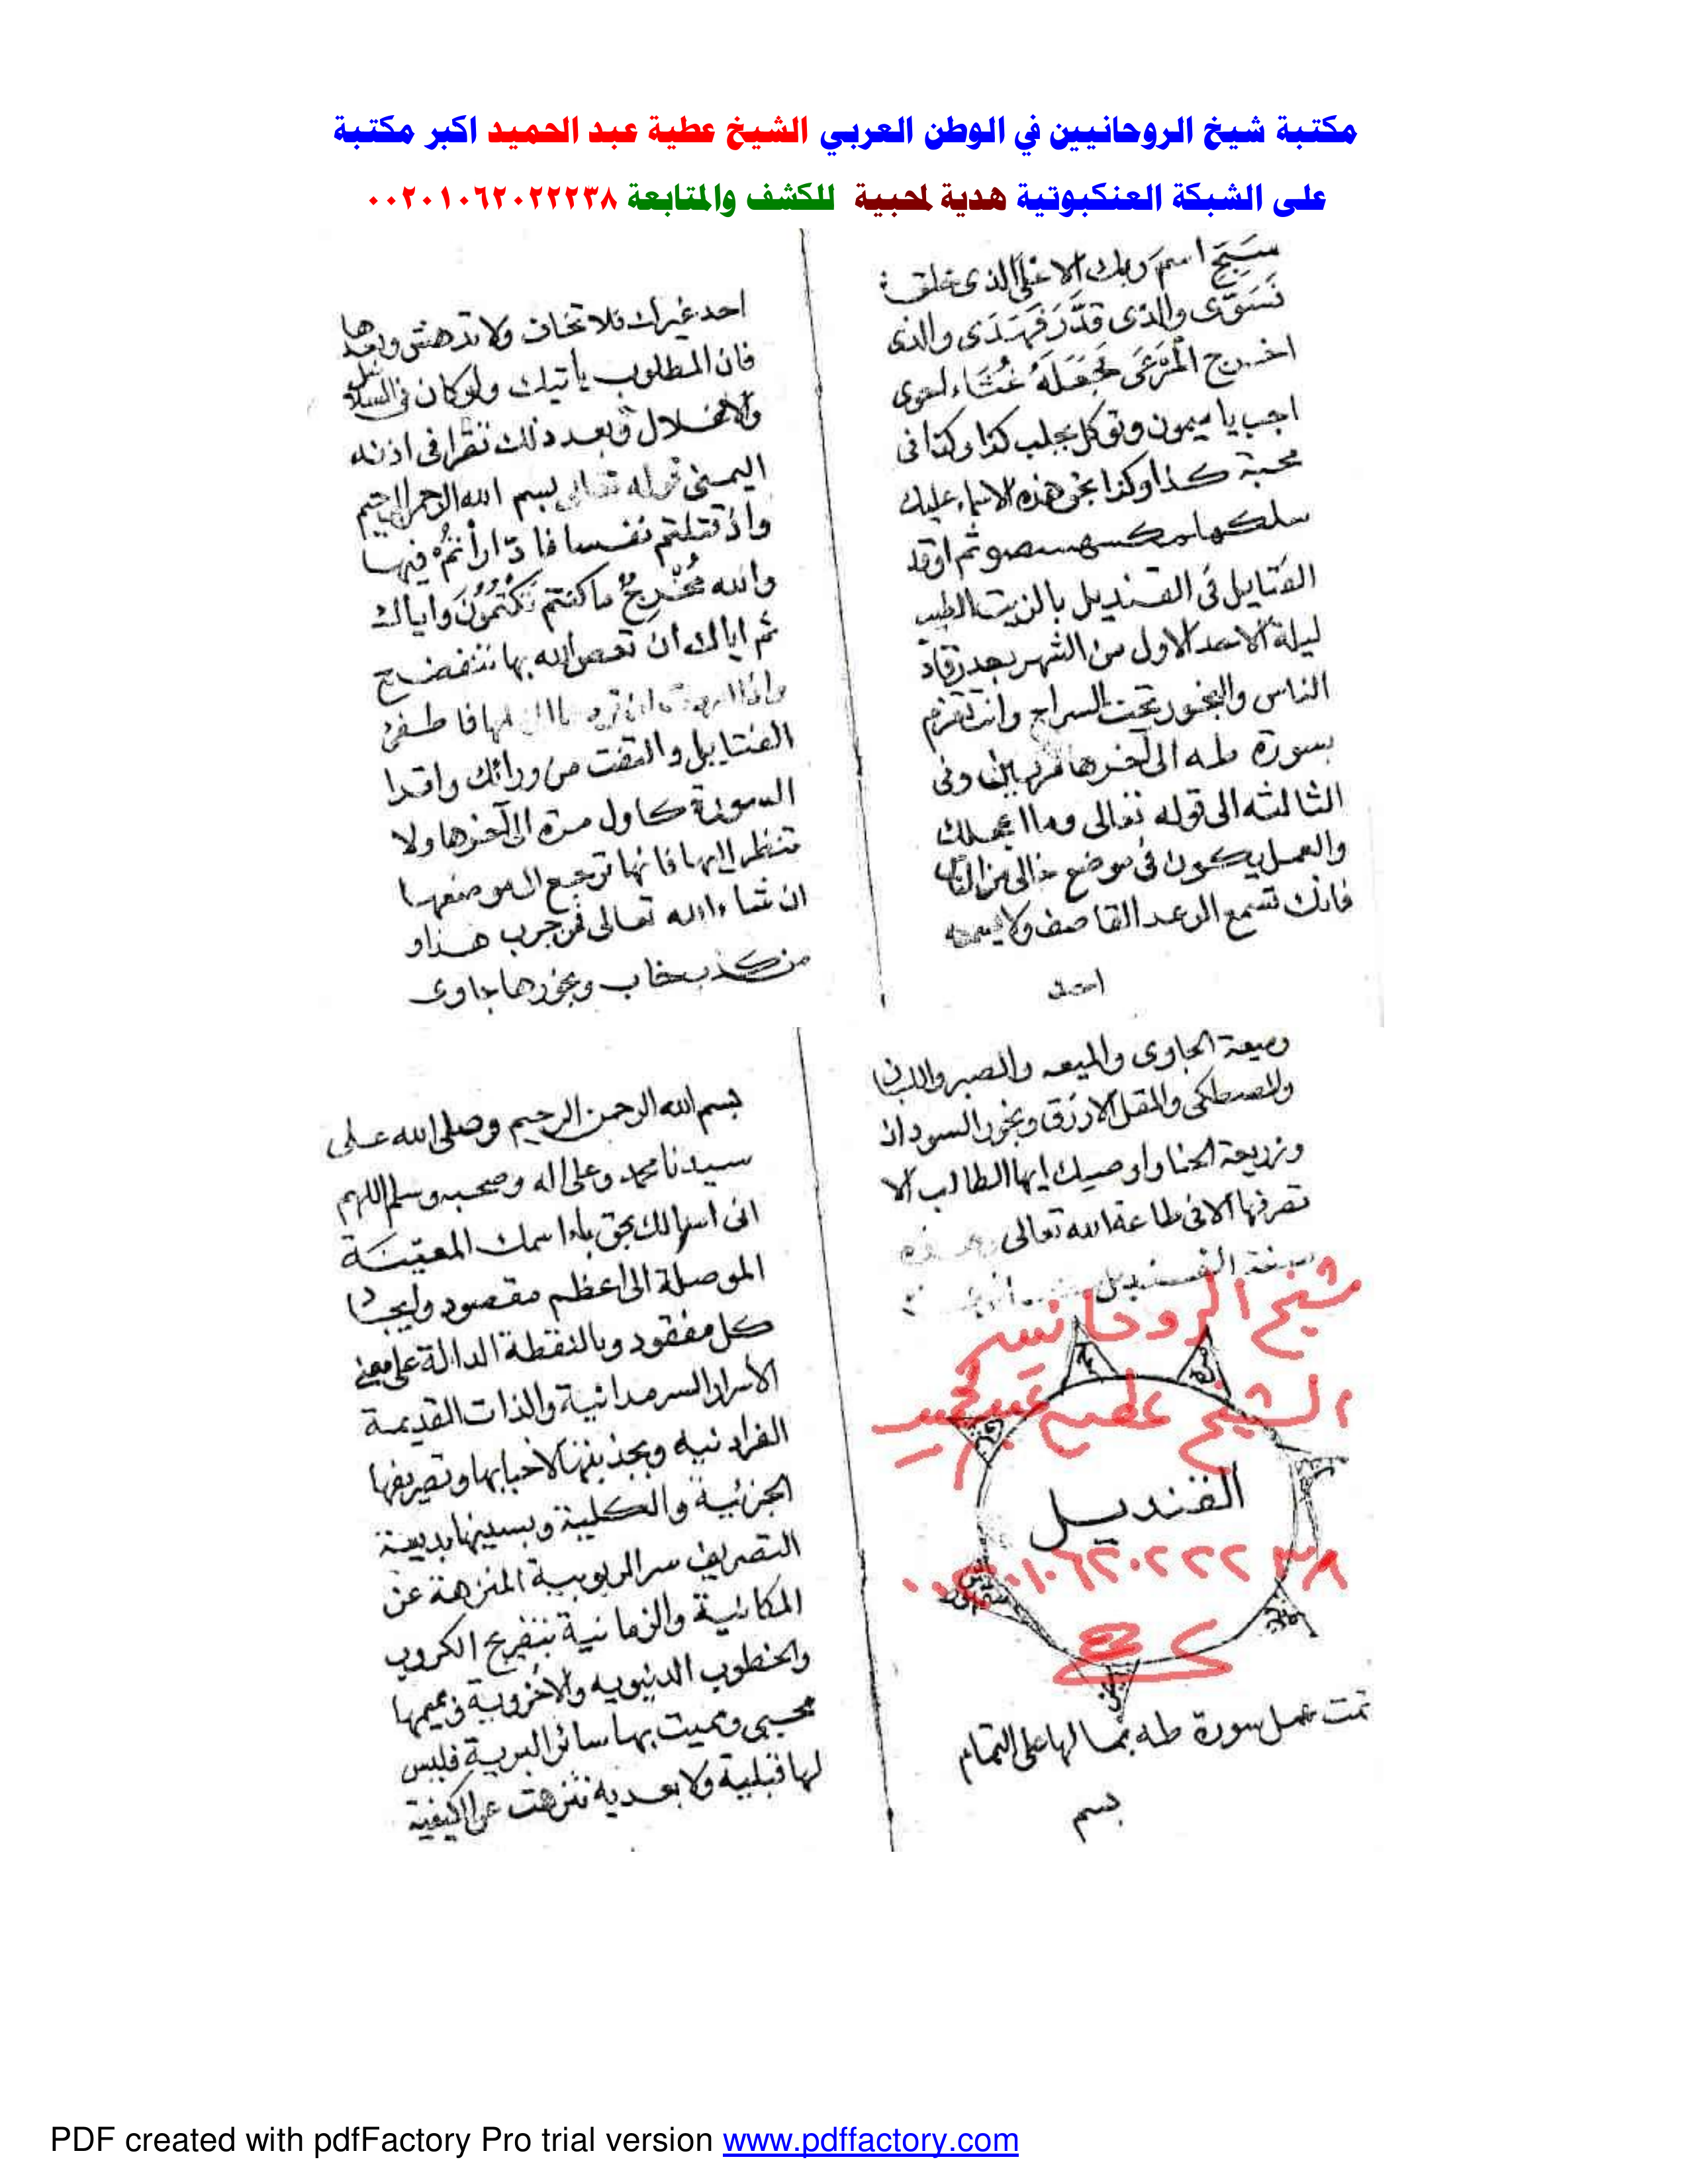 مكتبة شيخ الروحانيين في الوطن العربي الشيخ عطية عبد الحميد اكبر مكتبة
على الشبكة العنكبوتية هدية لمحبية للكشف والمتابعة ٠٠٢٠١٠٦٢٠٢٢٢٣٨
سَبِّحِ اسم ربك الاعلى الذى خلق
فَسَوَّى والذى قَدَّرَ فَهَدَى والذى
اخرج الْمَرْعَى فَجَعَلَهُ غُثَاء احوى
اجب يا ميمون وتوكل بجلب كذا وكذا فى
محبة كذا وكذا بحق هذه الاسماء عليك
ثم اوقد
الفتايل فى القنديل بالزيت الطيب
ليلة الاحد الاول من الشهر بعد رقاد
الناس والبخور تحت السراج وانت تعزم
بسورة طه الى آخرها مرتين وفى
الثالثه الى قوله تعالى وما اعجلك
والعمل يكون فى موضع خالى من الناس
فانك تسمع الرعد القاصف ولا يسمعه
احد
احد غيرك فلا تخاف ولا تدهش وبعدها
فان المطلوب ياتيك ولو كان فى السلاسل
والاغلال وبعد ذلك تقرا فى اذنه
اليمنى قوله تعالى بسم الله الرحمن الرحيم
واذ قتلتم نفسا فادَّارأتم فيها
والله مُخْرِجٌ ما كنتم تَكْتُمُونَ واياك
ثم اياك ان تعصى الله بها تنفضح
فاطفئ
الفتايل والتفت من ورائك واقرا
السورة كاول مرة الى آخرها ولا
تنظر اليها فانها ترجع الى موضعها
ان شاء الله تعالى فمن جرب هذا و
من كذب خاب وبخورها جاوى
وميعة الجاوى والميعه والصبر واللبان
والمصطكى والمقل الازرق وبخور السودان
وزريعة الحنا واوصيك ايها الطالب الا
تصرفها الا فى طاعة الله تعالى وهذه
صفة القنديل
شيخ الروحانيين
الشيخ عطيه عبد الحميد
القنديل
٠٠٢٠١٠٦٢٠٢٢٢٣٨
تمت عمل سورة طه بما لها على التمام
بسم
بسم الله الرحمن الرحيم وصلى الله على
سيدنا محمد وعلى اله وصحبه وسلم اللهم
انى اسالك بحق باء اسمك المعينة
الموصلة الى اعظم مقصود وايجاد
كل مفقود وبالنقطة الدالة على معنى
الاسرار السرمدانية والذات القديمة
الفردانيه وبجذبتها لاحبابها وتصريفها
الجزئية والكلية وبسينها بديعة
التصريف سر الربوبية المنزهة عن
المكانية والزمانية بتفريج الكروب
والخطوب الدنيويه والاخروية فى ميمها
محيى ومميت بها سائر البرية فليس
لها قبلية ولا بعديه تنزهت عن الكيفية
PDF created with pdfFactory Pro trial version www.pdffactory.com